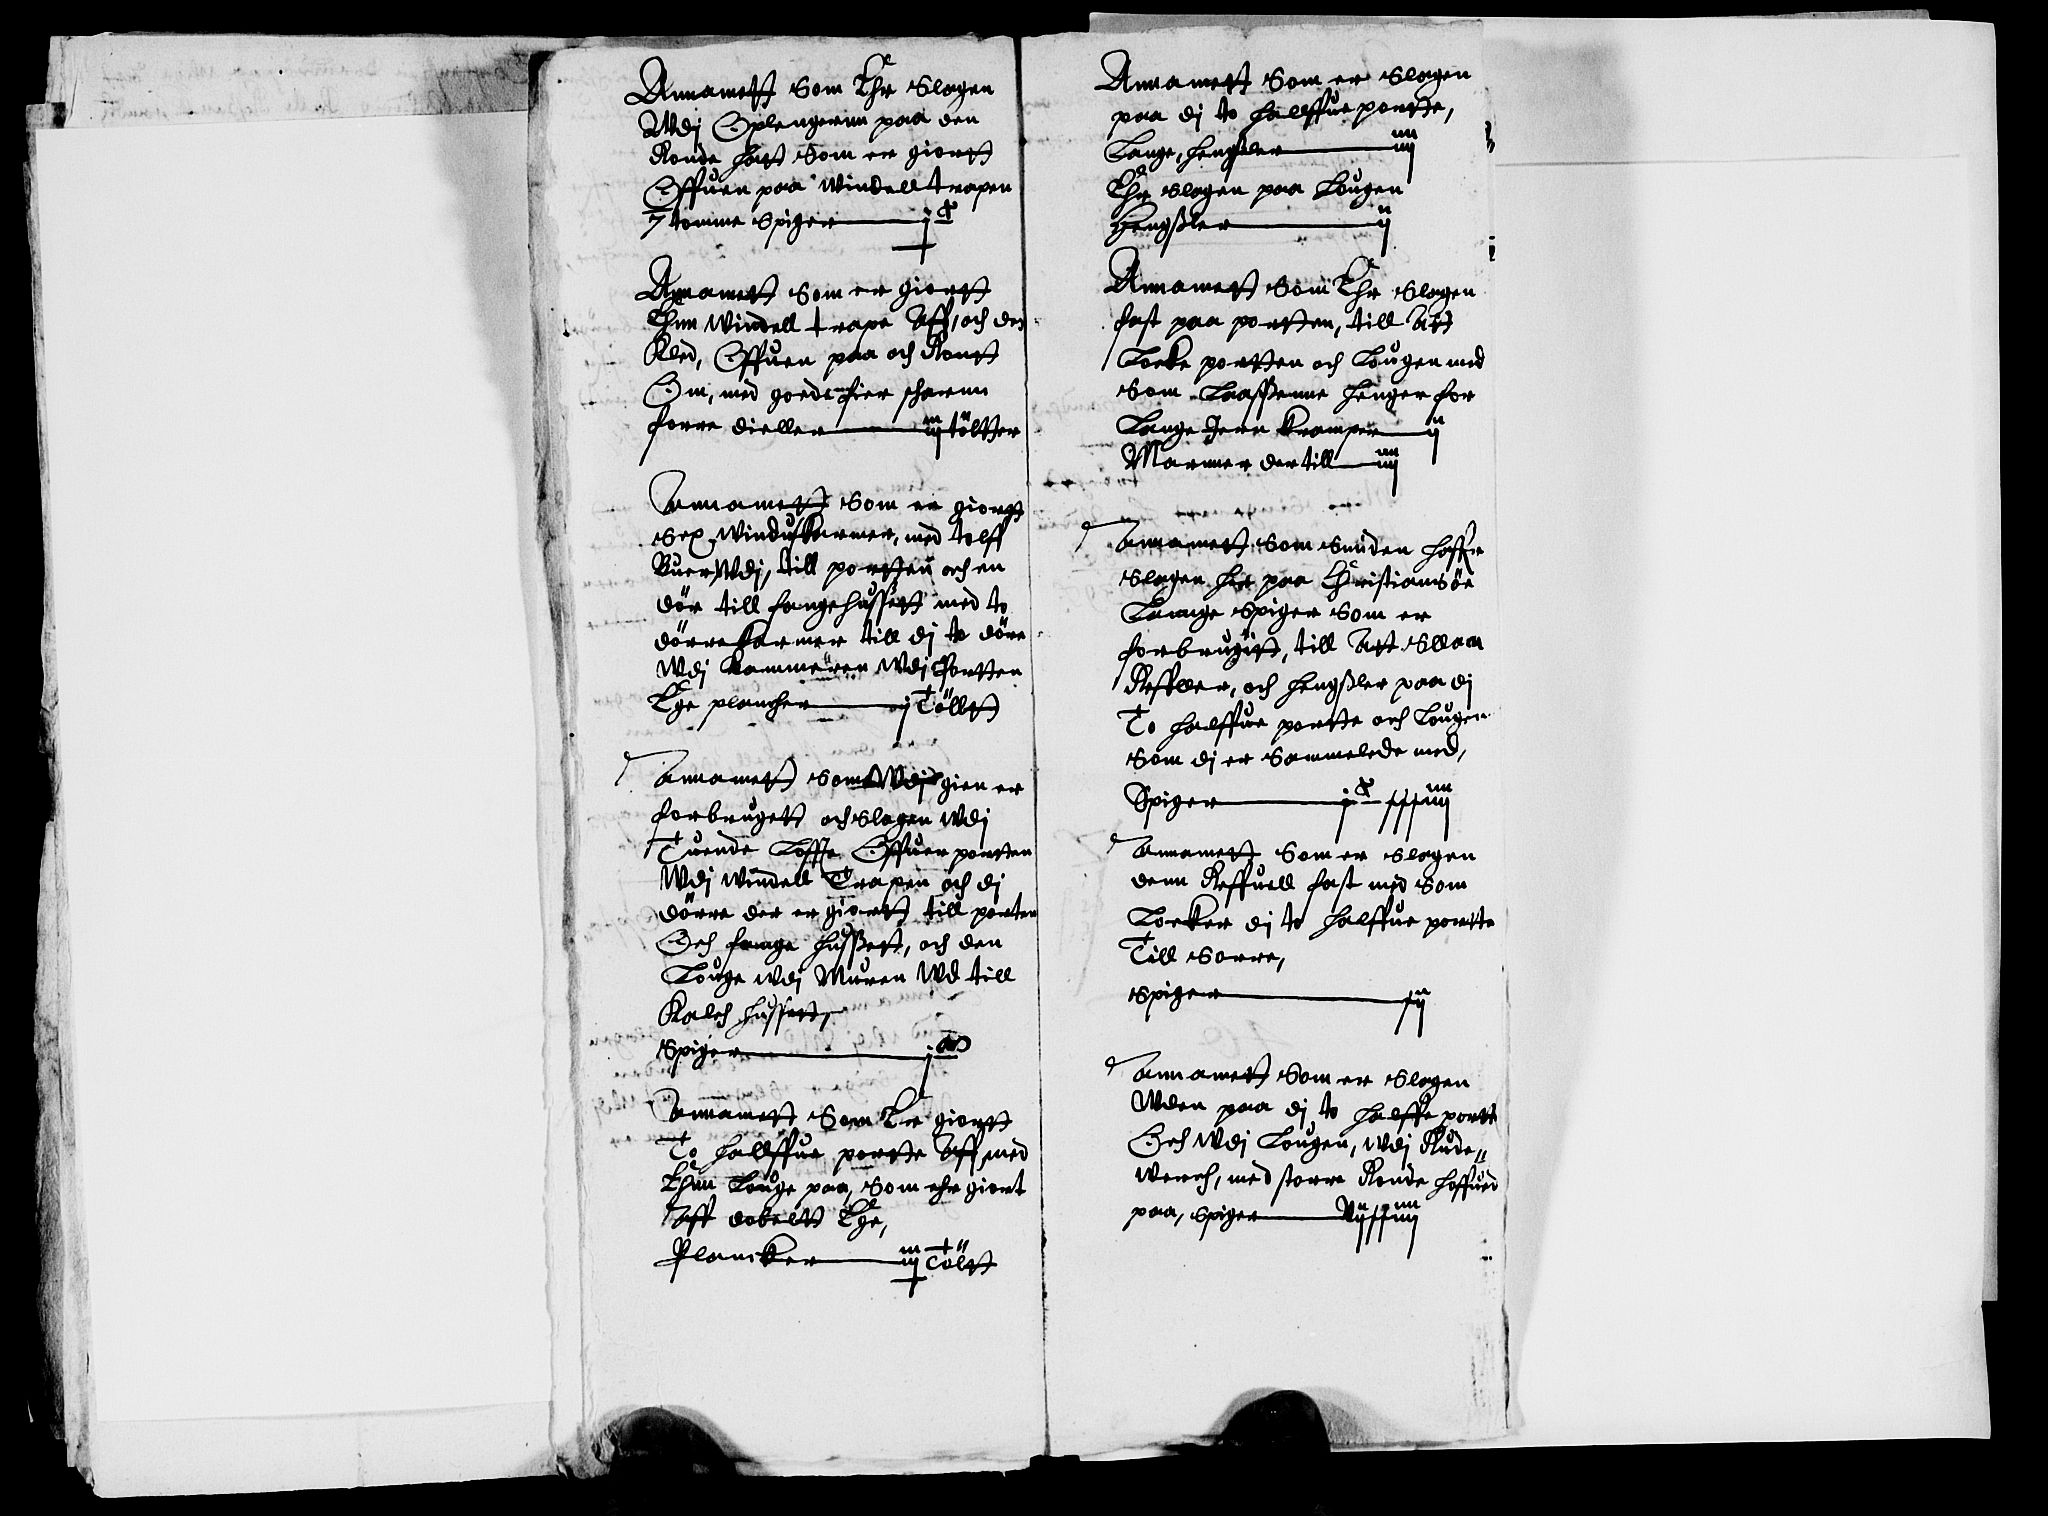 Annamett som Ehr Slagen
Wdj Splengernn paa den
Ronde hatt som er giortt
Offuen paa windell trapen
7 tomme Spiger j c
Annamett som er giortt
Ehnn Windell trape Aff, och den
Kled, Offuen paa och Rontt
Om, med goede fier scharnn
forre dieller iij töltter
Annamett som er giortt
Sex Winduskarmer, med tolff
Ruer Wdj, till portten och en
dör till fangehussett med to
dörrekarmer till dj to döre
Wdj kammeren Wdj Portten
Ege plancher j Töllt
Annamett som Wdj gien er
forbrugett och slagen wdj
Tuende Loffte Offuer portten
Wdj Windell Trapen och dj
dörre der er giortt till porten
Och fange husset, och den
Louge wdj Muren Wd till
Kalch hussett,
Spiger j m
Annamett Som Er giortt
To hallffue portte Aff, med
Ehnn Louge paa, som ehr giort
Aff dobelt Ege,
Plancker iij Tölt
Annamett som er Slagen
paa dj to hallffue portte,
Lange, hengsler iiij
Ehr slagen paa Lougen
Hengsler ij
Annamett som Ehr Slagen
fast paa portten, till Att
Locke portten och Lougen med
som Laassenne henger for
Lange Jern kramper ij
Mariner der till iiij
Annamett som Smiden haffr
slagen her paa Christiansöe
Lannge Spiger som er
forbrugitt, till Att Sllaa
Reffler, och hengsler paa dj
To halffue portte och Lougen
som dj er Sammelede med,
Spiger j c xxxiiij
Annamett Som er slagen
denn Reffuell fast med som
Locker dj to halffue portte
Till Sarre,
Spiger xij
Annamett som er slagen
Uden paa dj to halffe porte
Och Wdj Lougen, wdj Rude
werch, med storre Ronde hoffued
paa, spiger